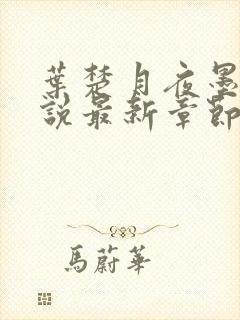 葉楚月夜墨
說最新章節
馬蔚華